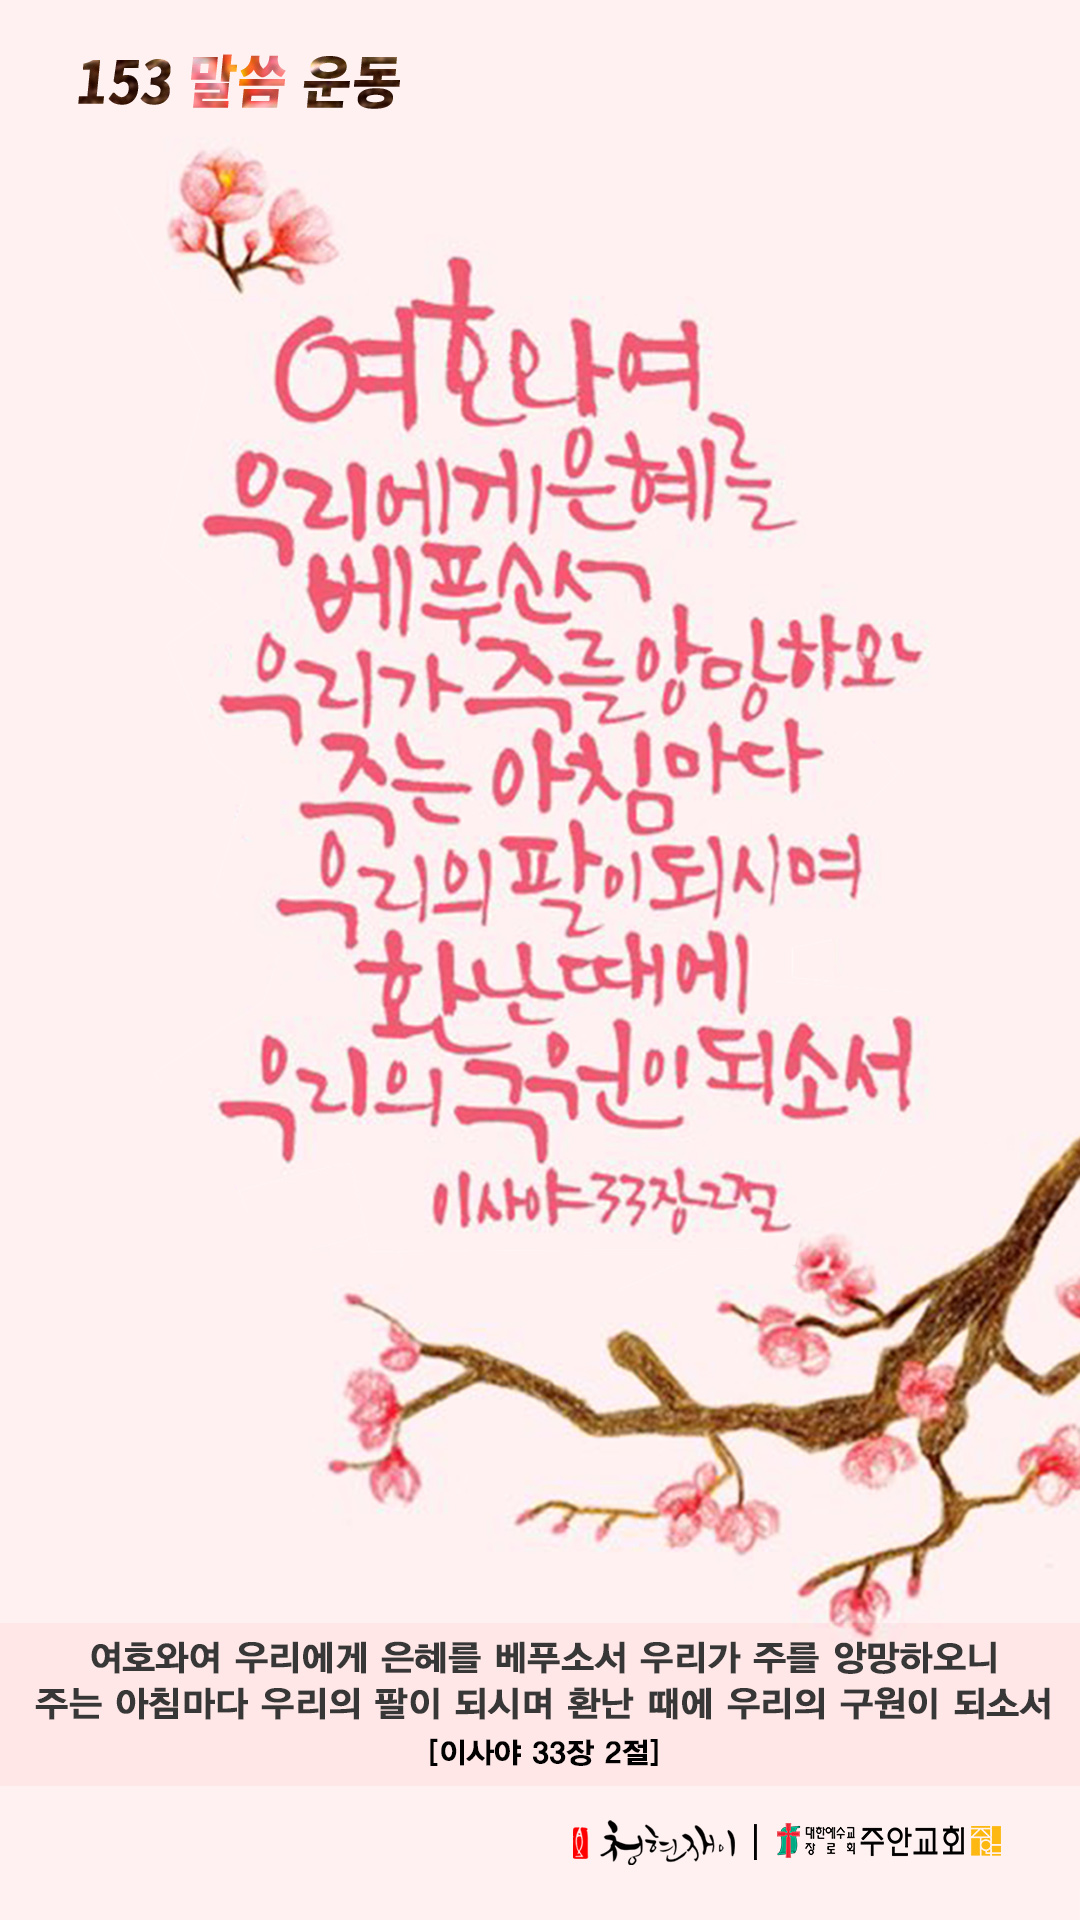 153 말씀 운동
여호와여
우리에게 은혜를
베푸소서
우리가 주를 앙망하오니
주는 아침마다
우리의 팔이 되시며
환난 때에
우리의 구원이 되소서
이사야 33장 2절
여호와여 우리에게 은혜를 베푸소서 우리가 주를 앙망하오니
주는 아침마다 우리의 팔이 되시며 환난 때에 우리의 구원이 되소서
[이사야 33장 2절]
청현재이 | 대한예수교 장로회 주안교회